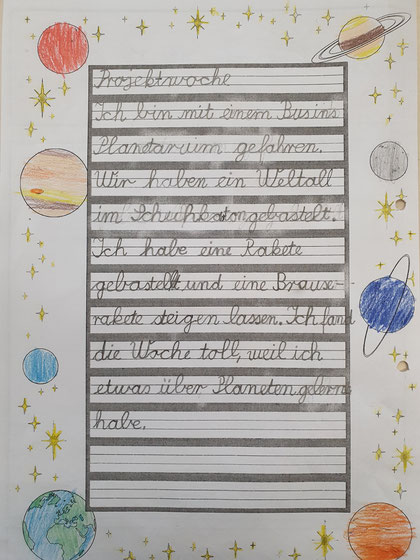 Projektwoche
Ich bin mit einem Bus ins
Planetarium gefahren.
Wir haben ein Weltall
im Schuhkaton gebastelt.
Ich habe eine Rakete
gebastelt und eine Brause-
rakete steigen lassen. Ich fand
die Woche toll, weil ich
etwas über Planeten gelernt
habe.